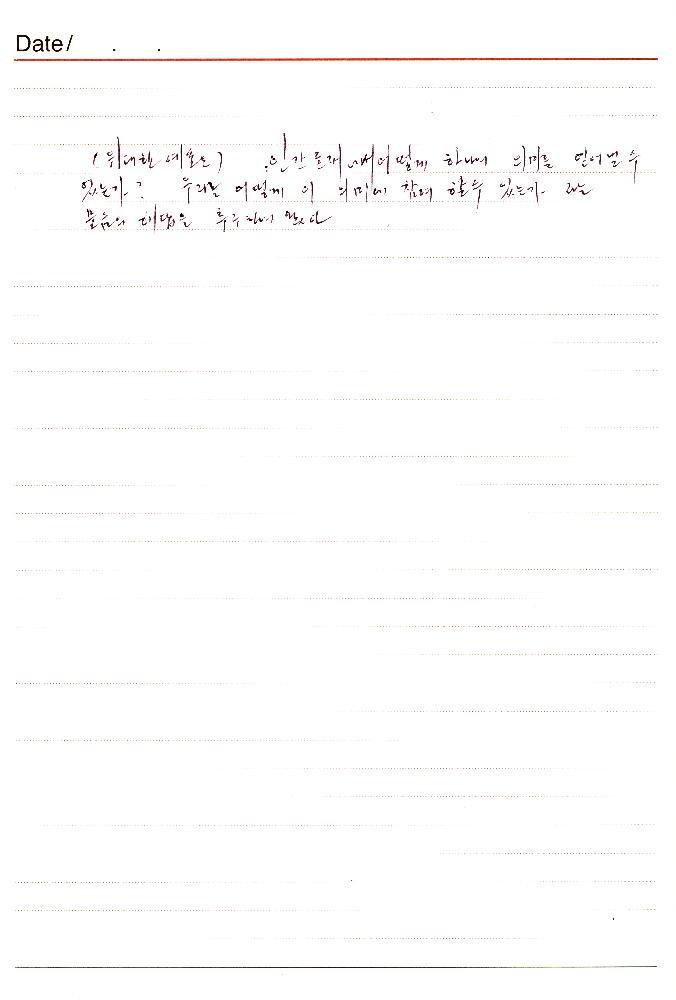 Date/ . .
(위대한 예술은) 인간 존재에서 어떻게 하나의 의미를 얻어낼 수
있는가? 우리는 어떻게 이 의미에 참여 할수 있는가 라는
물음의 대답을 추구하여 왔다